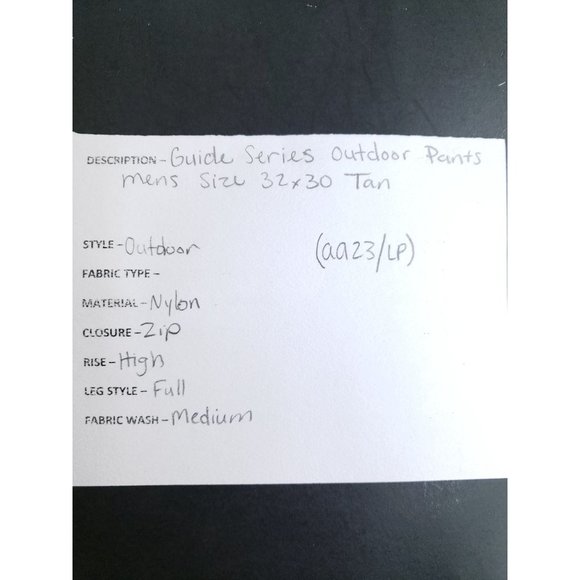 DESCRIPTION - Guide Series Outdoor Pants
mens Size 32x30 Tan
STYLE - Outdoor (aa23/LP)
FABRIC TYPE -
MATERIAL - Nylon
CLOSURE - Zip
RISE - High
LEG STYLE - Full
FABRIC WASH - Medium